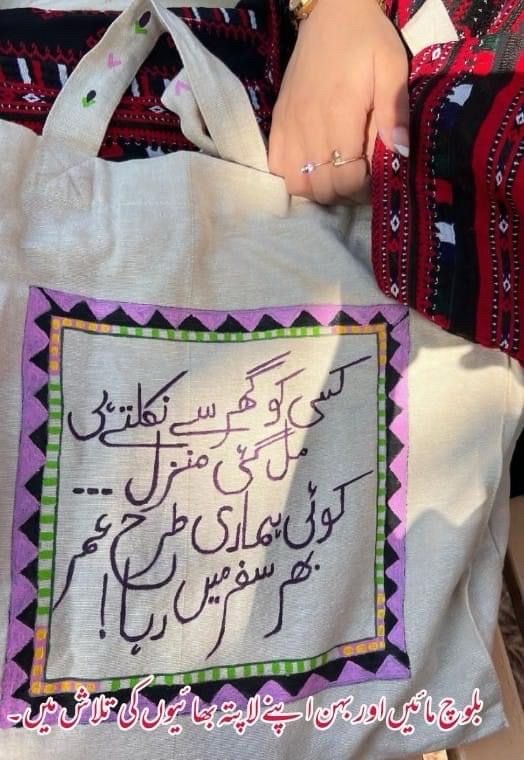 کسی کو گھر سے نکلتے ہی
مل گئی منزل ...
کوئی ہماری طرح عمر
بھر سفر میں رہا!
بلوچ مائیں اور بہن اپنے لاپتہ بھائیوں کی تلاش میں ۔